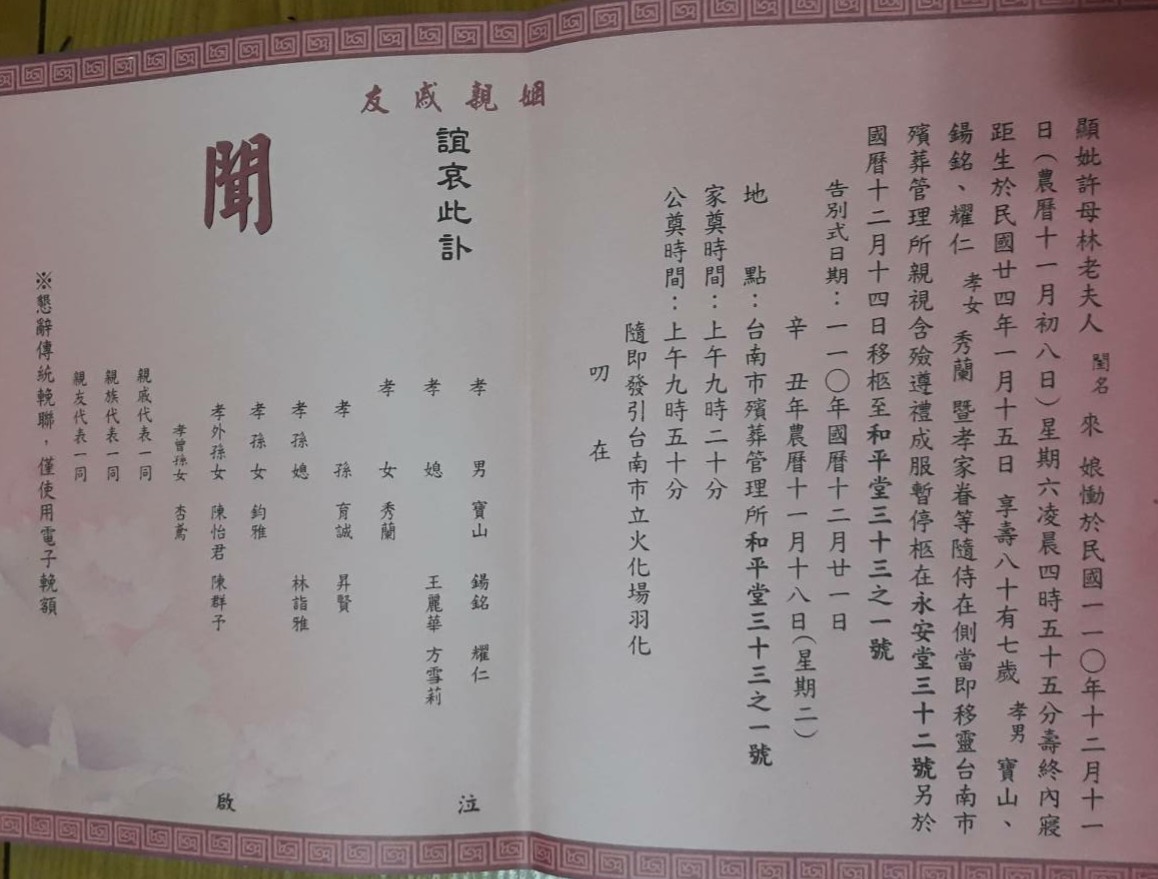 顯妣許母林老夫人 閨名 來 娘慟於民國一一〇年十二月十一
日(農曆十一月初八日)星期六凌晨四時五十五分壽終內寢
距生於民國廿四年一月十五日 享壽八十有七歲 孝男 寶山、
鍚銘、耀仁 孝女 秀蘭 暨孝家眷等隨侍在側當即移靈台南市
殯葬管理所親視含殮遵禮成服暫停柩在永安堂三十二號另於
國曆十二月十四日移柩至和平堂三十三之一號
告別式日期：一一〇年國曆十二月廿一日
辛丑年農曆十一月十八日(星期二)
地點：台南市殯葬管理所和平堂三十三之一號
家奠時間：上午九時二十分
公奠時間：上午九時五十分
隨即發引台南市立火化場羽化
叨在
姻親戚友
誼哀此訃
聞
孝男 寶山 鍚銘 耀仁
孝媳 王麗華 方雪莉
孝女 秀蘭
孝孫 育誠 昇賢
孝孫媳 林詣雅
孝孫女 鈞雅
孝外孫女 陳怡君 陳群予
孝曾孫女 杏鳶
泣
啟
親戚代表一同
親族代表一同
親友代表一同
※懇辭傳統輓聯，僅使用電子輓額